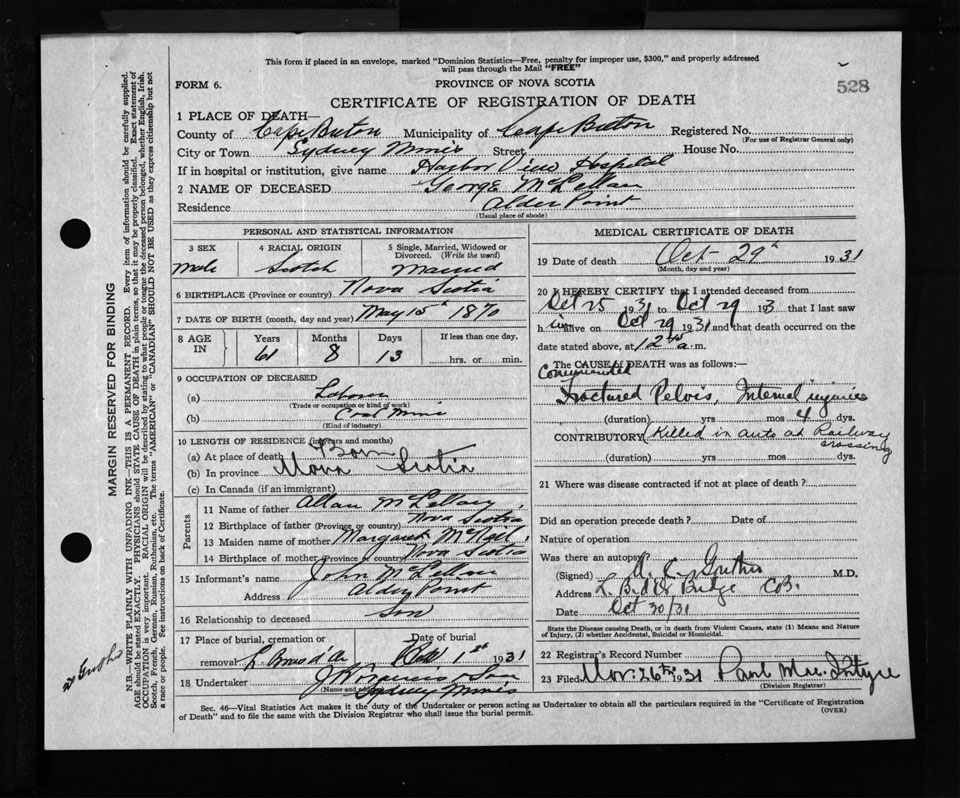 This form if placed in an envelope, marked "Dominion Statistics—Free, penalty for improper use, $300," and properly addressed
will pass through the Mail "FREE"
FORM 6.
PROVINCE OF NOVA SCOTIA
528
CERTIFICATE OF REGISTRATION OF DEATH
1 PLACE OF DEATH—
County of Cape Breton Municipality of Cape Breton Registered No.
(For use of Registrar General only)
City or Town Sydney Mines Street House No.
If in hospital or institution, give name Harbor View Hospital
2 NAME OF DECEASED George McLellan
Residence Alder Point
(Usual place of abode)
PERSONAL AND STATISTICAL INFORMATION
3 SEX 4 RACIAL ORIGIN 5 Single, Married, Widowed or
Divorced. (Write the word)
Male Scotch Married
6 BIRTHPLACE (Province or country) Nova Scotia
7 DATE OF BIRTH (month, day and year) May 15th 1870
8 AGE IN Years Months Days If less than one day,
61 8 13 hrs. or min.
9 OCCUPATION OF DECEASED
(a) Labour
(Trade or occupation or kind of work)
(b) Coal Mine
(Kind of industry)
10 LENGTH OF RESIDENCE (in years and months)
(a) At place of death Born
(b) In province Nova Scotia
(c) In Canada (if an immigrant)
Parents
11 Name of father Allan McLellan
12 Birthplace of father (Province or country) Nova Scotia
13 Maiden name of mother Margaret McNeil
14 Birthplace of mother (Province or country) Nova Scotia
15 Informant's name John McLellan
Address Alder Point
16 Relationship to deceased Son
17 Place of burial, cremation or Date of burial
removal L. Bras d'Or 1st 1931
18 Undertaker & Son
(Name and address) Sydney Mines
MEDICAL CERTIFICATE OF DEATH
19 Date of death Oct 29th 1931
(Month, day and year)
20 I HEREBY CERTIFY that I attended deceased from
Oct 25 1931 to Oct 29 193 that I last saw
h im alive on Oct 29 1931 and that death occurred on the
date stated above, at 12 a.m.
The CAUSE of DEATH was as follows:—
Fractured Pelvis, Internal injuries
(duration) yrs mos 4 dys.
CONTRIBUTORY (Killed in auto at Railway
crossing
(duration) yrs. mos. dys.
21 Where was disease contracted if not at place of death?
Did an operation precede death? Date of
Nature of operation
Was there an autopsy?
(Signed) M.D.
Address L. Bras d'Or Bridge C.B.
Date Oct 30/31
State the Disease causing Death, or in death from Violent Causes, state (1) Means and Nature
of Injury, (2) whether Accidental, Suicidal or Homicidal.
22 Registrar's Record Number
23 Filed Nov. 26th 1931 Paul MacIntyre
(Division Registrar)
Sec. 46—Vital Statistics Act makes it the duty of the Undertaker or person acting as Undertaker to obtain all the particulars required in the "Certificate of Registration
of Death" and to file the same with the Division Registrar who shall issue the burial permit. (OVER)
MARGIN RESERVED FOR BINDING
N.B.—WRITE PLAINLY WITH UNFADING INK—THIS IS A PERMANENT RECORD. Every item of information should be carefully supplied.
AGE should be stated EXACTLY. PHYSICIANS should STATE CAUSE OF DEATH in plain terms, so that it may be properly classified. Exact statement of
OCCUPATION is very important. RACIAL ORIGIN will be described by stating to what people or tongue the deceased person belonged, whether English, Irish,
Scotch, French, German, Russian, Ruthenian, etc. The terms "AMERICAN" or "CANADIAN" SHOULD NOT BE USED as they express citizenship but not
a race or people. See instructions on back of Certificate.